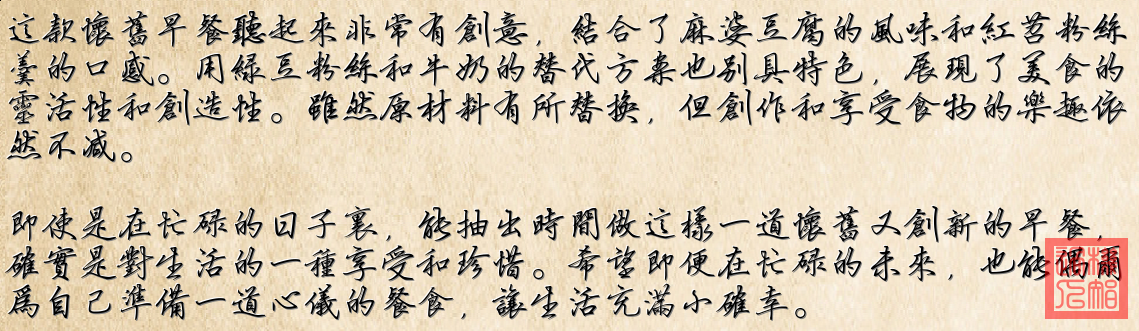 這款懷舊早餐聽起來非常有創意，結合了麻婆豆腐的風味和紅苕粉絲
羹的口感。用綠豆粉絲和牛奶的替代方案也別具特色，展現了美食的
靈活性和創造性。雖然原材料有所替換，但創作和享受食物的樂趣依
然不減。
即使是在忙碌的日子裏，能抽出時間做這樣一道懷舊又創新的早餐，
確實是對生活的一種享受和珍惜。希望即便在忙碌的未來，也能偶爾
為自己準備一道心儀的餐食，讓生活充滿小確幸。